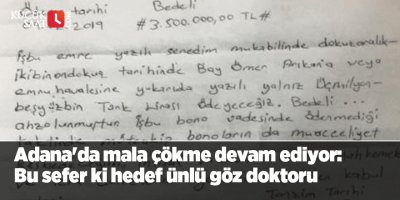 KÜÇÜK SAAT
tarihi Bedeli
2019 #3.500.000,00 TL#
İşbu emre yazılı senedim mukabilinde dokuzaralık-
ikibinondokuz tarihinde Bay Ömer veya
emruhavalesine yukarıda yazılı yalnız Üçmilyon-
beşyüzbin Türk Lirası ödeyeceğiz. Bedeli ...
ahzolunmuştur İşbu bono vadesinde ödenmediği
bonoların da muacceliyet
Adana'da mala çökme devam ediyor:
Bu sefer ki hedef ünlü göz doktoru
Tanzim Tarihi